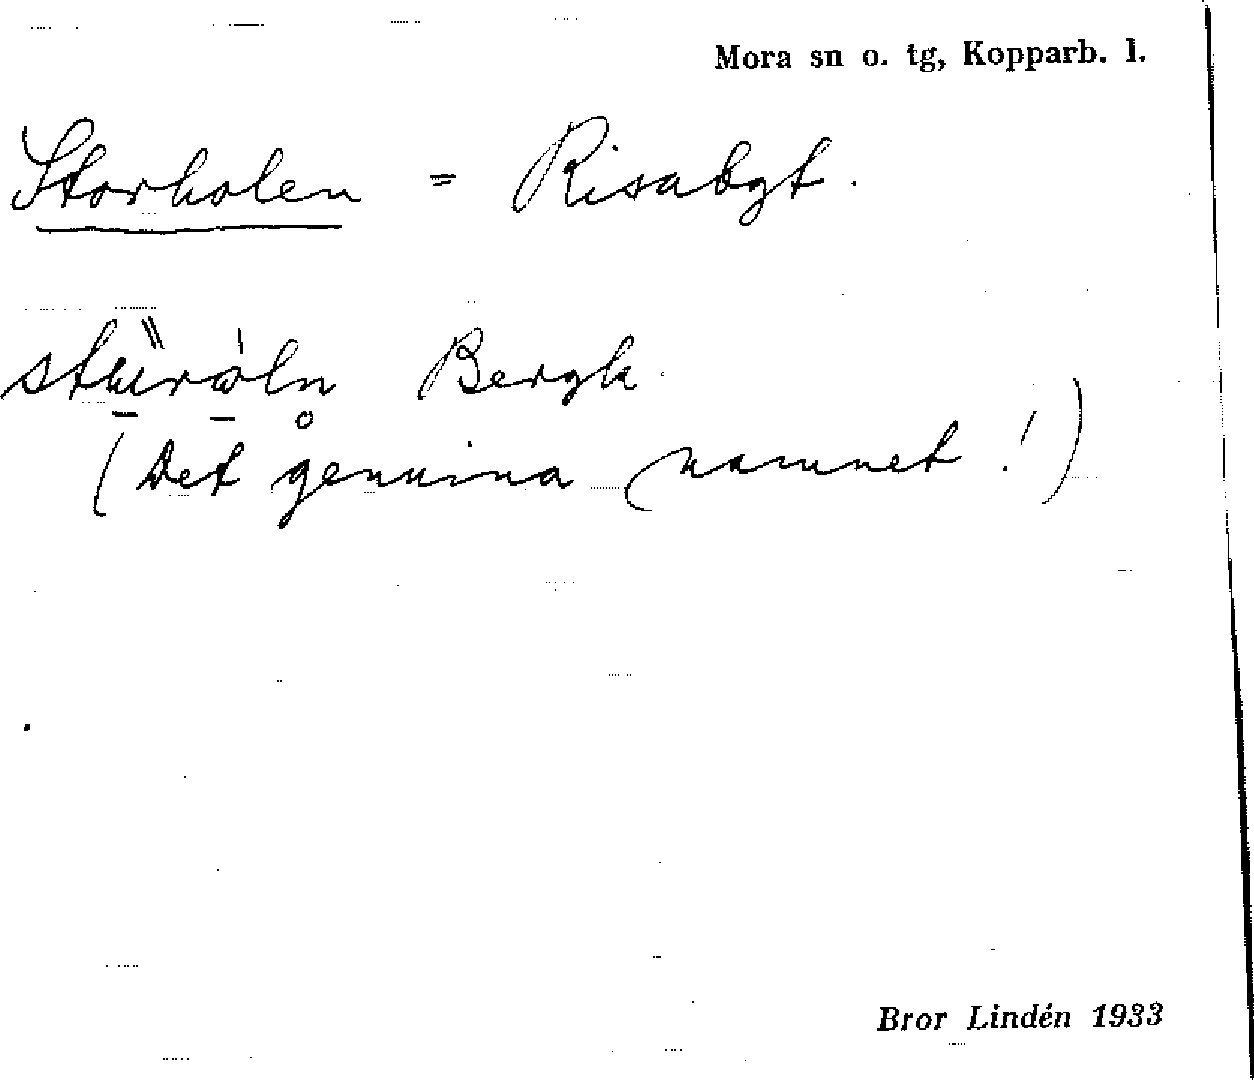 Mora sn o. tg, Kopparb. l.
Storholen = Risabgt.
Bergk.
(Det genuina namnet!)
Bror Lindén 1933